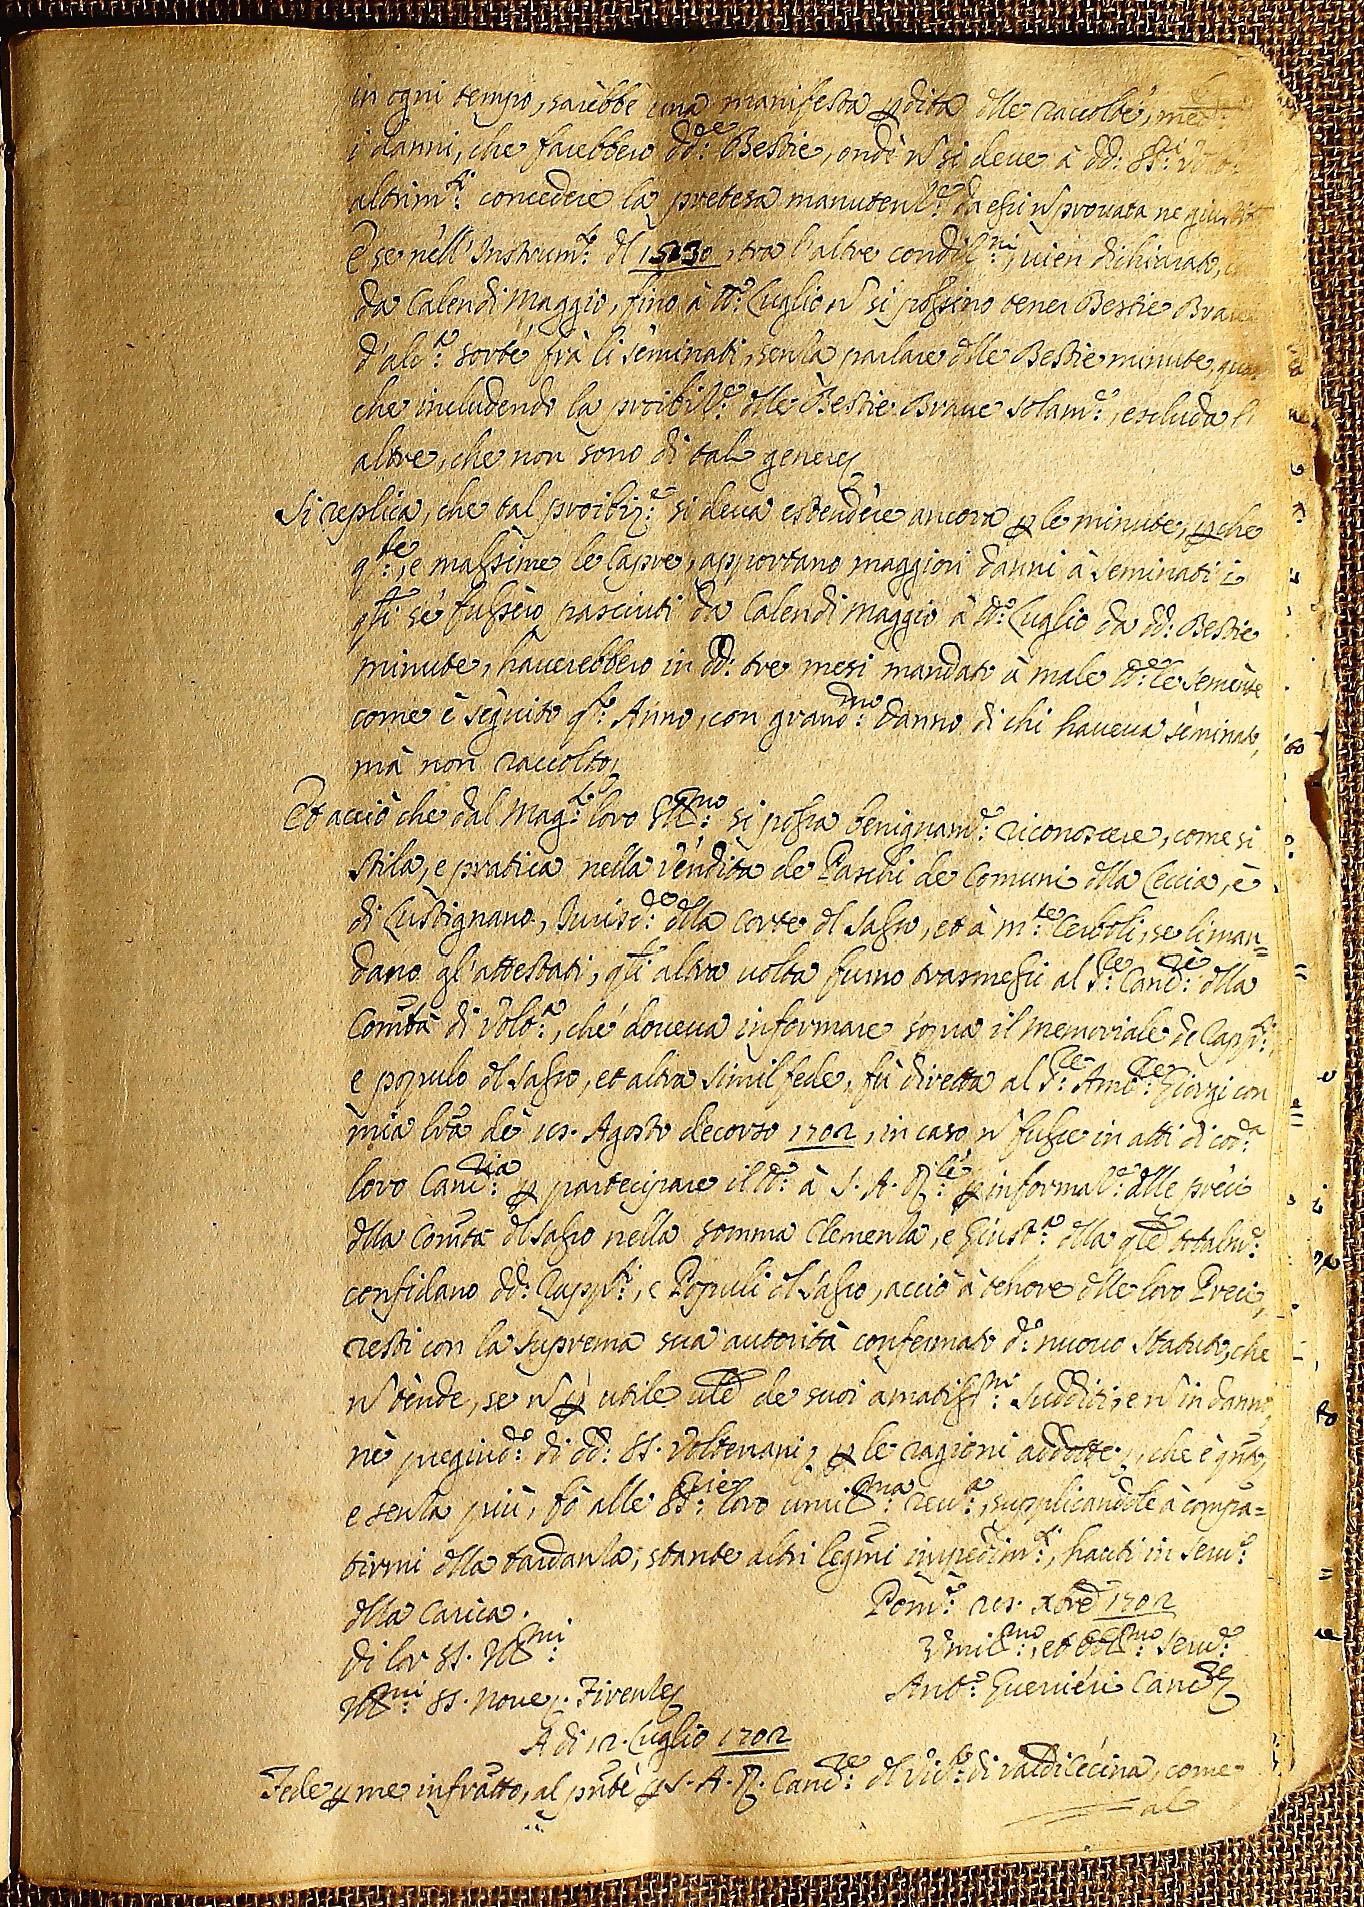 in ogni tempo, sarebbe una manifesta pdita dlle raccolte, med.
i danni, che farebbero dd:e Bestie, onde n si deve à dd: SS:ri
altrim:ti concedere la pretesa manuten.ne da essi n provata ne
E se nell'Instrum:to dl 1530, tra l'altre condiz:ni, vien dichiarato,
da Calendi Maggio, fino à tt:o Luglio n si possino tener Bestie Brave
d'alc:a sorte frà li seminati, senza parlare dlle Bestie minute, quasi
che includendo la proibiz:ne dlle Bestie Brave solam:e, escluda li
altre, che non sono di tal genere
Si replica, che tal proibiz:e si deva estendere ancora p le minute, pche
q:ste, e massime le Capre, apportano maggiori danni à seminati, e
q:sti se fussero pasciuti da Calendi Maggio à tt:o Luglio da dd: Bestie
minute, haverebbero in dd: tre mesi mandato à male tt:e le semente
come è seguito q:to Anno, con grand:mo danno di chi haveva seminato,
mà non raccolto,
Et acciò che dal Mag:to loro Ill:mo si possa benignam:e riconoscere, come si
stila, e pratica nella vendita de Paschi de Comuni dlla Leccia, e
di Lustignano, Jurisd:e dlla Corte dl Sasso, et à M:te Cerboli, se li man=
dano gl'attestati, q:ti altra volta furno trasmessi al S:re Canc:re dlla
Comtà di Volt:a, che doveva informare sopra il memoriale de Rapp:ti,
e popolo dl Sasso, et altra simil fede, fù diretta al S:re Amb:re Giorgi con
mia lra de 15. Agosto decorso 1702, in caso n fusse in atti di cod:a
loro Canc:ria p partecipare il tt:o à S. A. R:le p informaz:e dlle preci
dlla Comtà dl Sasso nella somma Clemenza, e Giust:a dlla qle totalm:e
confidano dd: Rapp:ti, e Popoli dl Sasso, acciò à tenore dlle loro Preci,
resti con la suprema sua autorità confermato d:o nuovo Statuto, che
n tende, se n p utile de suoi amatiss:mi sudditi, e n in danno,
nè pregiud:o di dd: SS. Volterrani, p le ragioni addotte, che è qnto,
e senza più, fò alle SS:rie loro umil:ma rev:a, supplicandole à compa=
tirmi dlla tardanza, stante altri legmi impedim:ti, hauti in serv:o
dlla Carica.
Di lor SS. Ill:mi
Pom:e 25. Xbre 1702
Umil:mo, et Obl:mo Serv:e
Ill:mi SS. Nove, Firenze
Ant:o Guerrieri Canc:re
A di 12. Luglio 1702
Fede p me infratto, al pnte p S. A. R. Canc:re dl Vic:to di Valdicecina, come
al